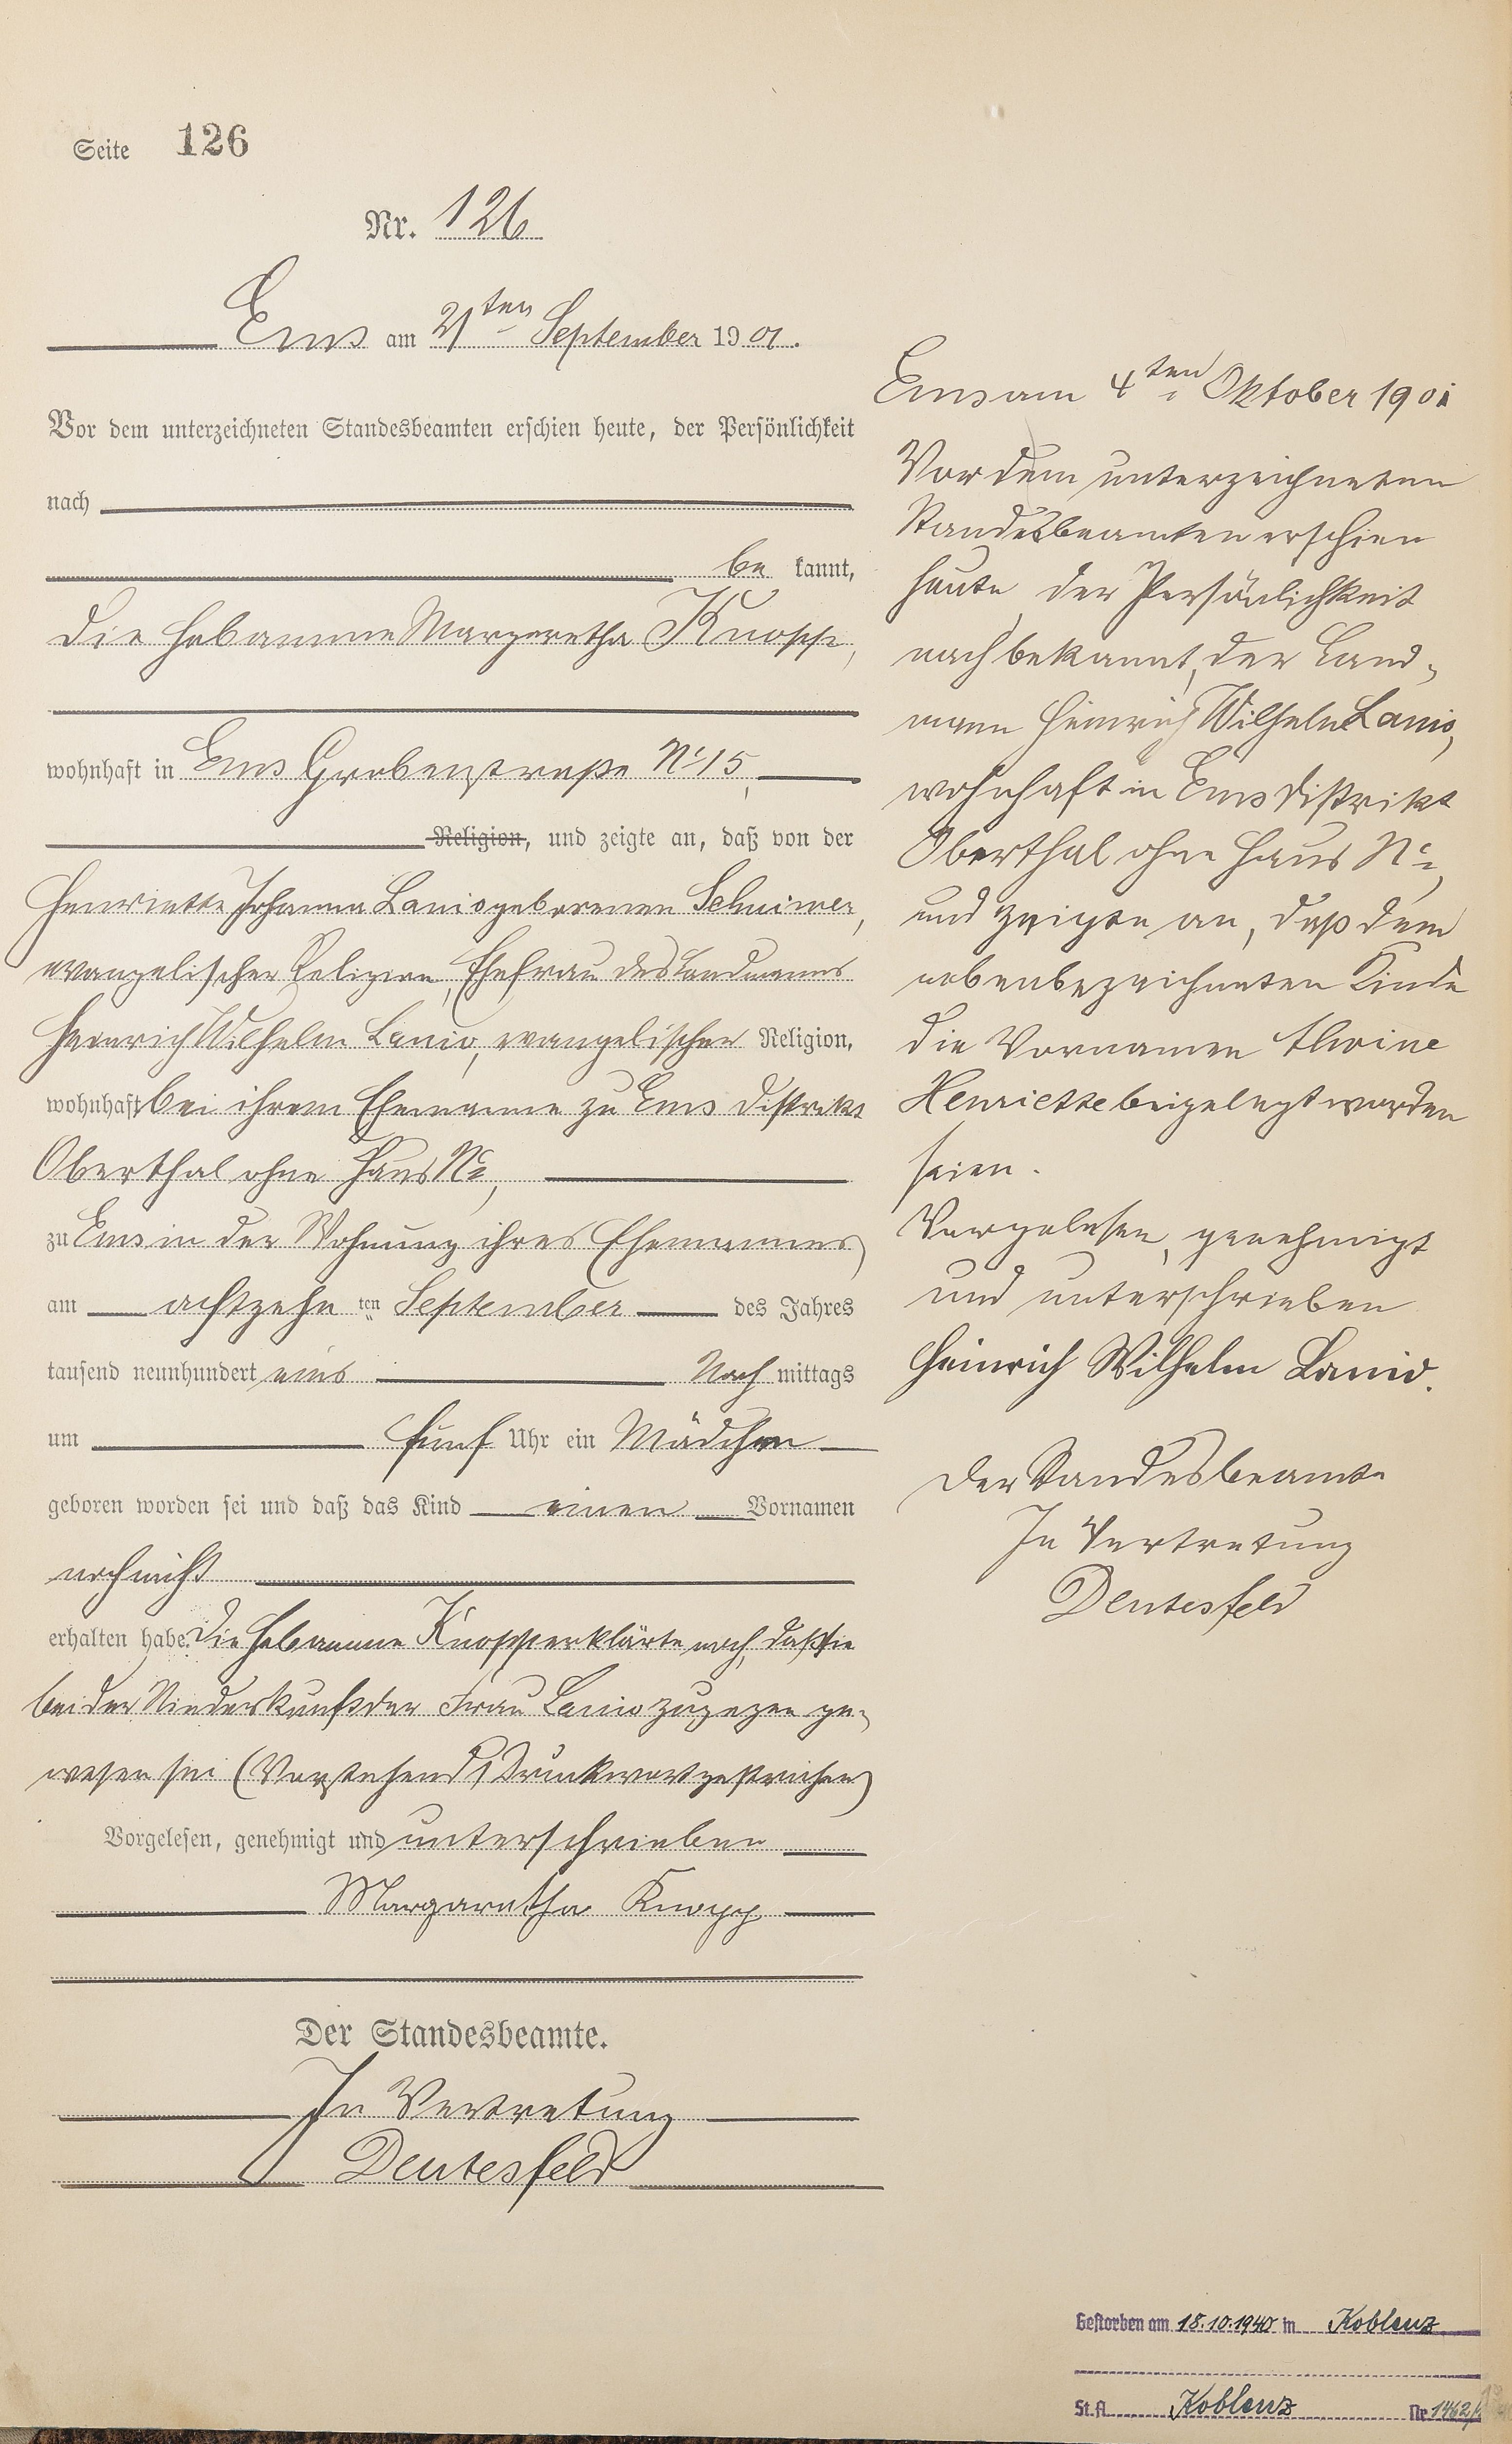 Seite 126
Nr. 126
Ems am 21ten September 1901.
Vor dem unterzeichneten Standesbeamten erschien heute, der Persönlichkeit
nach
be kannt,
die Hebamme Margaretha Knopp,
wohnhaft in Ems Grabenstraße No 15,
Religion, und zeigte an, daß von der
Henriette Johanna Lanio geborenen Schuimer,
evangelischer Religion, Ehefrau des Landmanns
Heinrich Wilhelm Lanio, evangelischer Religion,
wohnhaft bei ihrem Ehemanne zu Ems Distrikt
Oberthal ohne Haus No,
zu Ems in der Wohnung ihres Ehemannes,
am achtzehn ten September des Jahres
tausend neunhundert eins Nach mittags
um fünf Uhr ein Mädchen
geboren worden sei und daß das Kind einen Vornamen
noch nicht
erhalten habe. Die Hebamme Knopp erklärte noch, daß sie
bei der Niederkunft der Frau Lanio zugegen ge-
wesen sei (Vorstehend 1 Druckwort gestrichen)
Vorgelesen, genehmigt und unterschrieben
Margaretha Knopp
Der Standesbeamte.
In Vertretung
Deutesfeld
Ems am 4ten Oktober 1901
Vor dem unterzeichneten
Standesbeamten erschien
heute der Persönlichkeit
nach bekannt, der Land-
mann Heinrich Wilhelm Lanio,
wohnhaft in Ems Distrikt
Oberthal ohne Haus No,
und zeigte an, daß dem
nebenbezeichneten Kinde
die Vornamen Alwine
Henriette beigelegt worden
seien.
Vorgelesen, genehmigt
und unterschrieben
Heinrich Wilhelm Lanio.
Der Standesbeamte
In Vertretung
Deutesfeld
Gestorben am 18.10.1940 in Koblenz
St.A. Koblenz Nr. 1462/